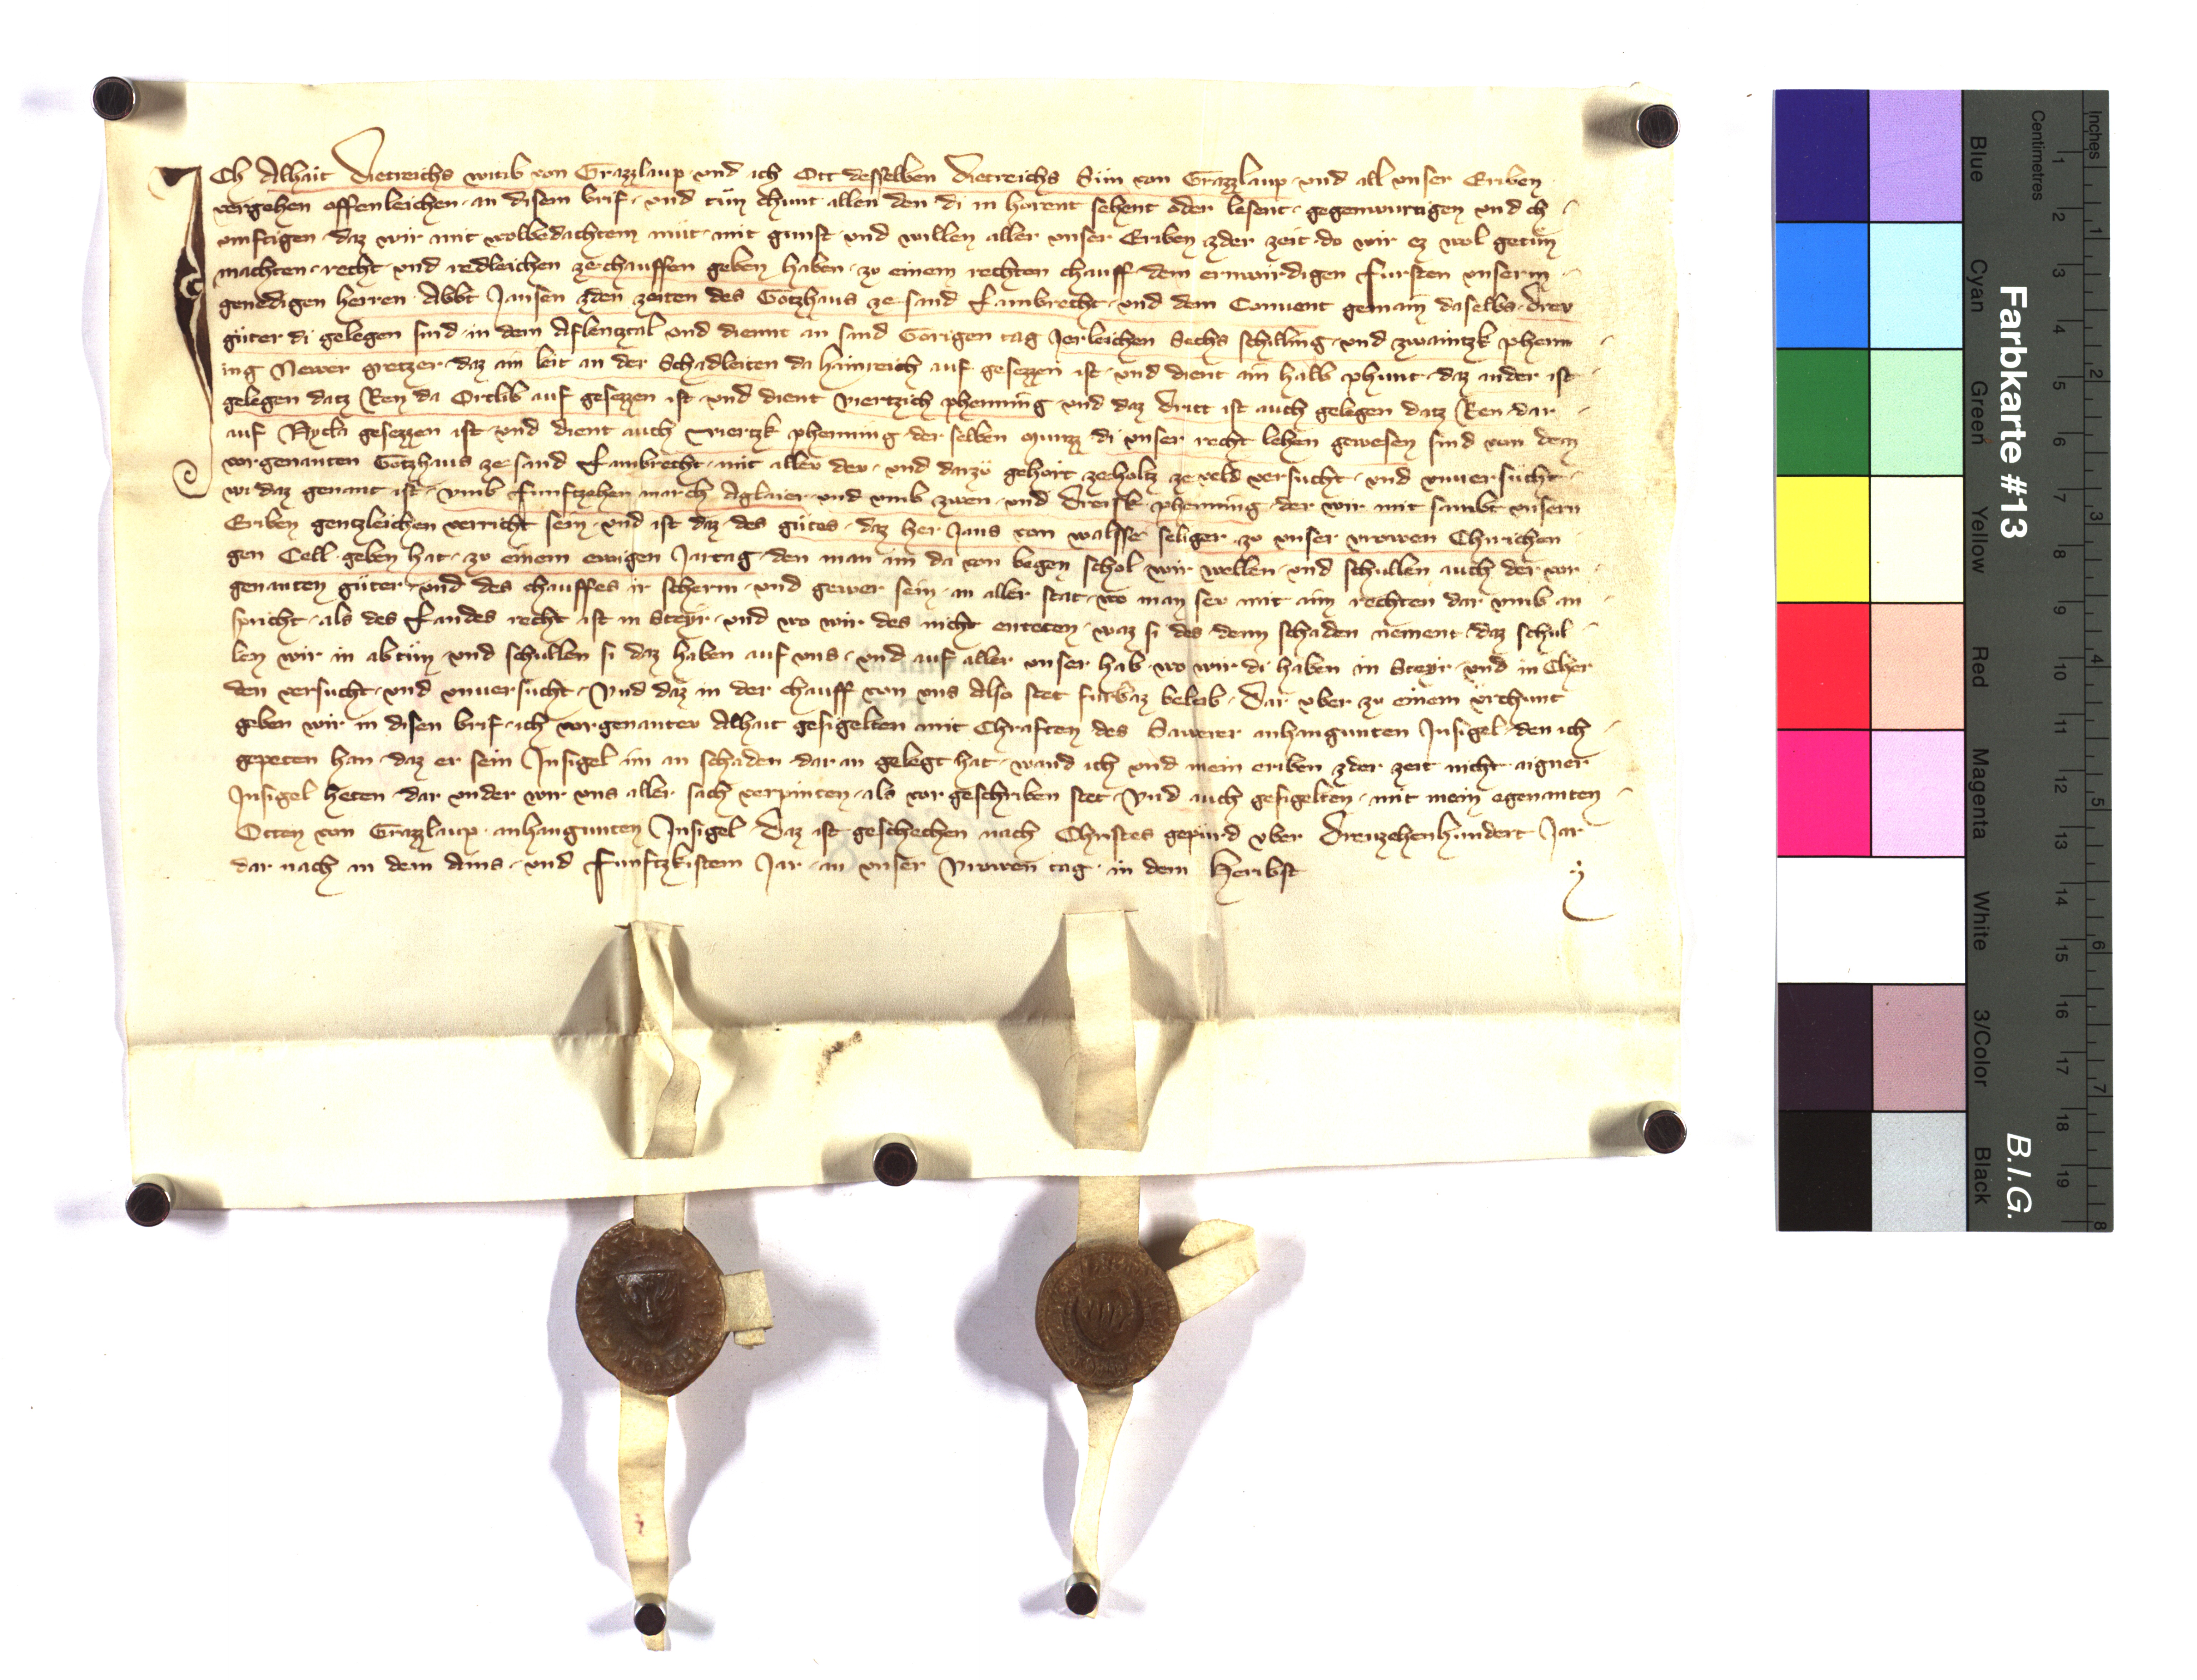 ICh Alhait Dietreichs witib von Grazzlaup · und ich Ott desselben Dietreichs Sün von Grazzlaup · und all unser Eriben
vergehen offenleichen · an disem brif · und tün chunt allen den di in hörent sehent oder lesent · gegenwurtigen und ch
umftigen · daz wir mit wolbedachtem müt · mit gunst · und willen aller unser Eriben zder zeit · do wir ez wol getün
machten · recht · und redleichen ze chauffen geben haben · zu einem rechten chauff · dem erwirdigen fursten unserm
genedigen herren · Abbt Jansen zden zeiten des Gotzhaus ze sand Lambrecht · und dem Convent gemain daselbs · drev
güter di gelegen sind · in dem Aflenztal und dient an sand Görigen tag Jerleichen Sechs schilling · und zwaintzk phenn
ing Newer gretzer · daz ain leit an der Schadleiten da hainreich auf gesezzen ist · und dient ain halb phunt · daz ander ist
gelegen datz Ren da Ortlib auf gesezzen ist · und dient viertzich phenning · und daz dritt ist auch gelegen datz Ren · dar
auf Nycla gesezzen ist · und dient auch viertzk phenning der selben munzz di unser recht lehen gewesen sind von dem
vorgenanten Gotzhaus ze sand Lambrecht · mit aller dev · und darzü gehört ze holtz ze veld versucht · und unversücht
wi daz genant ist · umb funftzehen march Aglaier · und umb zwen · und dreisk phenning · der wir mit sambt unsern
Eriben gentzleichen verricht sein · und ist daz · des gütes · daz her Jans von walsse seliger zu unser vrowen Chirichen
gen Cell · geben hat · zu einem ewigen Jartag · den man im da von begen schol · wir wellen · und schullen auch der vor
genanten güter · und des chauffes ir scherm · und gewer sein · an aller stat · wo man sev mit aim rechten dar umb an
spricht · als des Landes recht ist in Steyr · und wo wir des nicht enteten · waz si des denn schaden nement · daz schul
len wir in abtün · und schullen si daz haben auf uns · und auf aller unser hab · wo wir di haben in Steyr · und in Cher
den versucht · und unversucht · Und daz in der chauff von uns Also stet furbaz beleib · Dar uber zu einem ürchunt
geben wir in disen brif · ich vorgenantev Alhait gesigelten mit Chraften des Sawrer anhangunten Insigel · den ich
gepeten han · daz er sein Insigel im an schaden dar an gelegt hat · wand ich und mein eriben zder zeit nicht aigner
Insigel heten · dar under wir uns aller sach verpinten · als vor geschriben stet · Und auch gesigelten · mit mein egenanten
Otten von Grazzlaup · anhangunten Insigel · Daz ist geschechen nach Christes gepürd uber Dreuzehenhundert Jar
dar nach in dem Ains · und Funftzkistem Jar · an unser Vrowen tag · in dem Heribst
Farbkarte #13
B.I.G.
Centimetres
Inches
Blue
Cyan
Green
Yellow
Red
Magenta
White
3/Color
Black
1 2 3 4 5 6 7 8 9 10 11 12 13 14 15 16 17 18 19
1 2 3 4 5 6 7 8